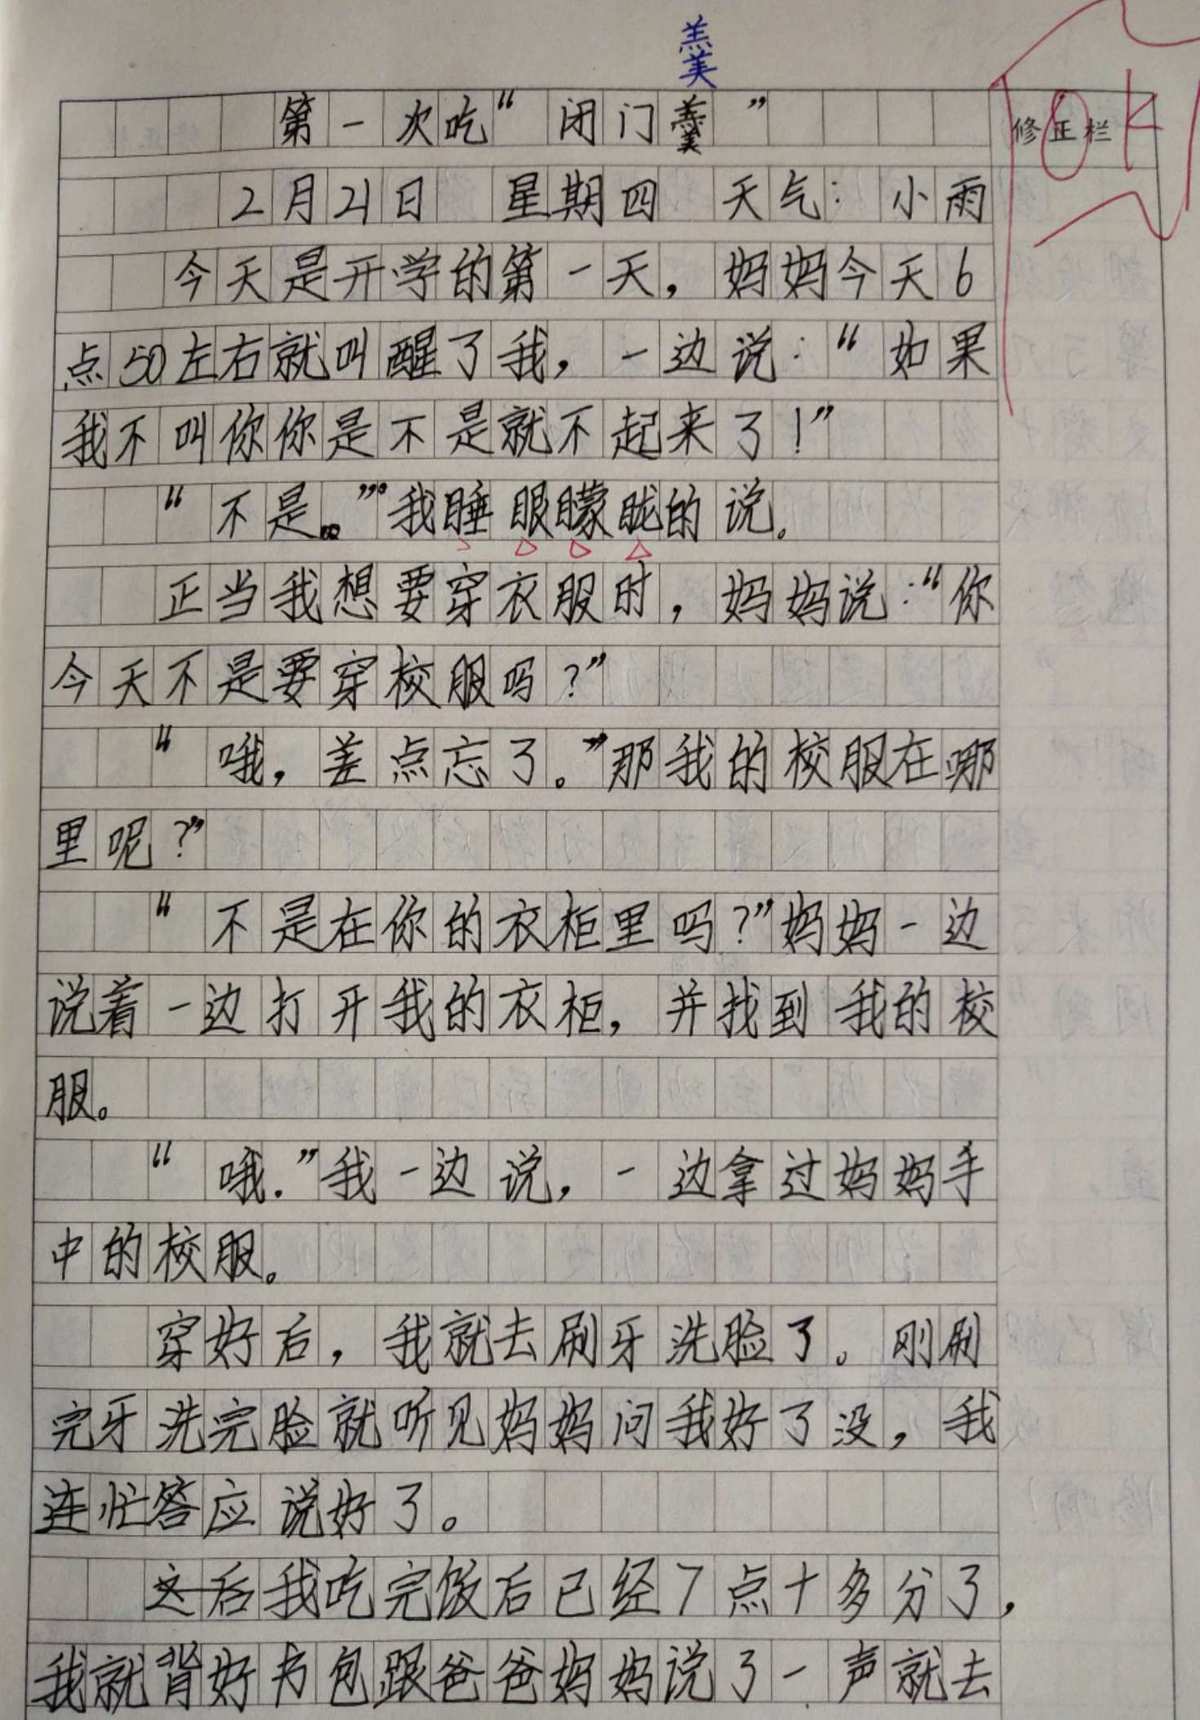 羹
第一次吃“闭门羹”
修正栏
2月21日 星期四 天气：小雨
今天是开学的第一天，妈妈今天6
点50左右就叫醒了我，一边说：“如果
我不叫你你是不是就不起来了！”
“不是。”我睡眼朦胧的说。
正当我想要穿衣服时，妈妈说：“你
今天不是要穿校服吗？”
“哦，差点忘了。”那我的校服在哪
里呢？”
“不是在你的衣柜里吗？”妈妈一边
说着一边打开我的衣柜，并找到我的校
服。
“哦．”我一边说，一边拿过妈妈手
中的校服。
穿好后，我就去刷牙洗脸了。刚刷
完牙洗完脸就听见妈妈问我好了没，我
连忙答应说好了。
我吃完饭后已经7点十多分了，
我就背好书包跟爸爸妈妈说了一声就去